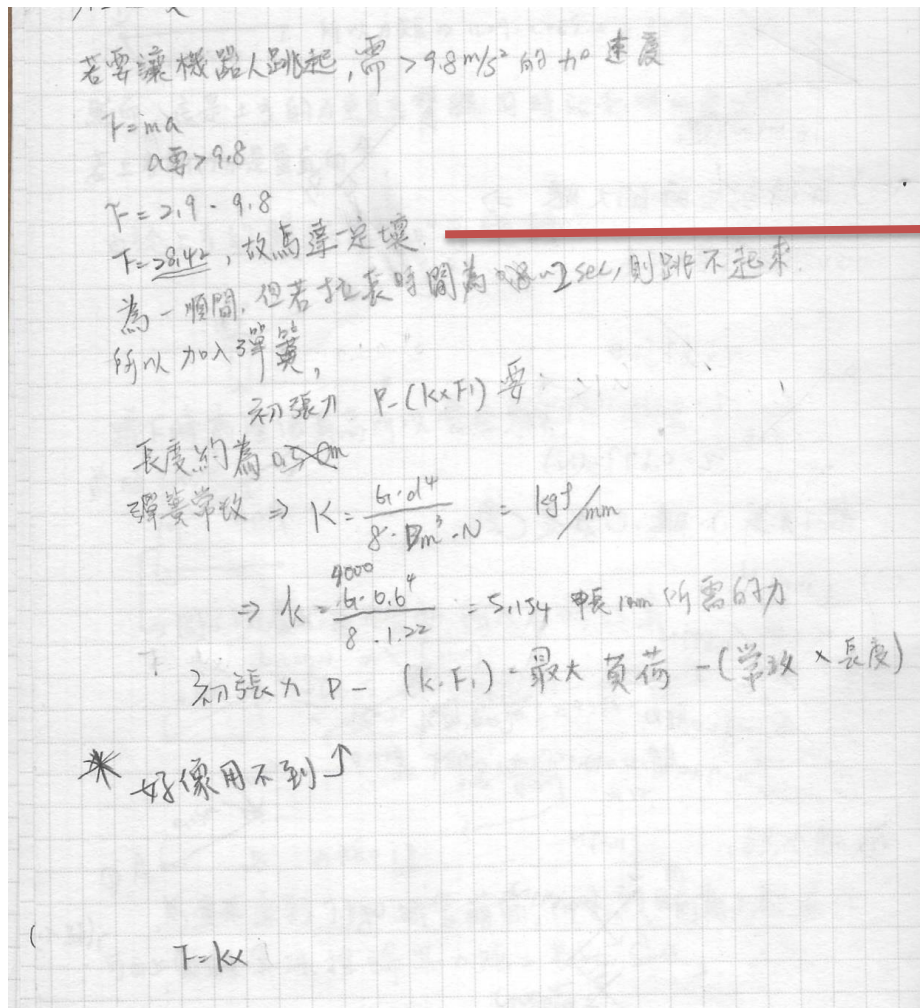 若要讓機器人跳起,需 > 9.8 m/s² 的加速度
F=ma
a要>9.8
F = 2.9 · 9.8
F=28.42, 故馬達一定壞.
為一順間, 但若拉長時間為 2 sec, 則跳不起來.
所以加入彈簧,
初張力 P-(k×F1) 要
長度約為
彈簧常數 ⇒ K = G·d⁴ / 8·Dm³·N = kgf/mm
⇒ k = G·0.6⁴ / 8·1.22 = 5.154 伸長 1mm 所需的力
4000
初張力 P - (k·F1) - 最大負荷 - (常數 × 長度)
* 好像用不到↑
F=kx